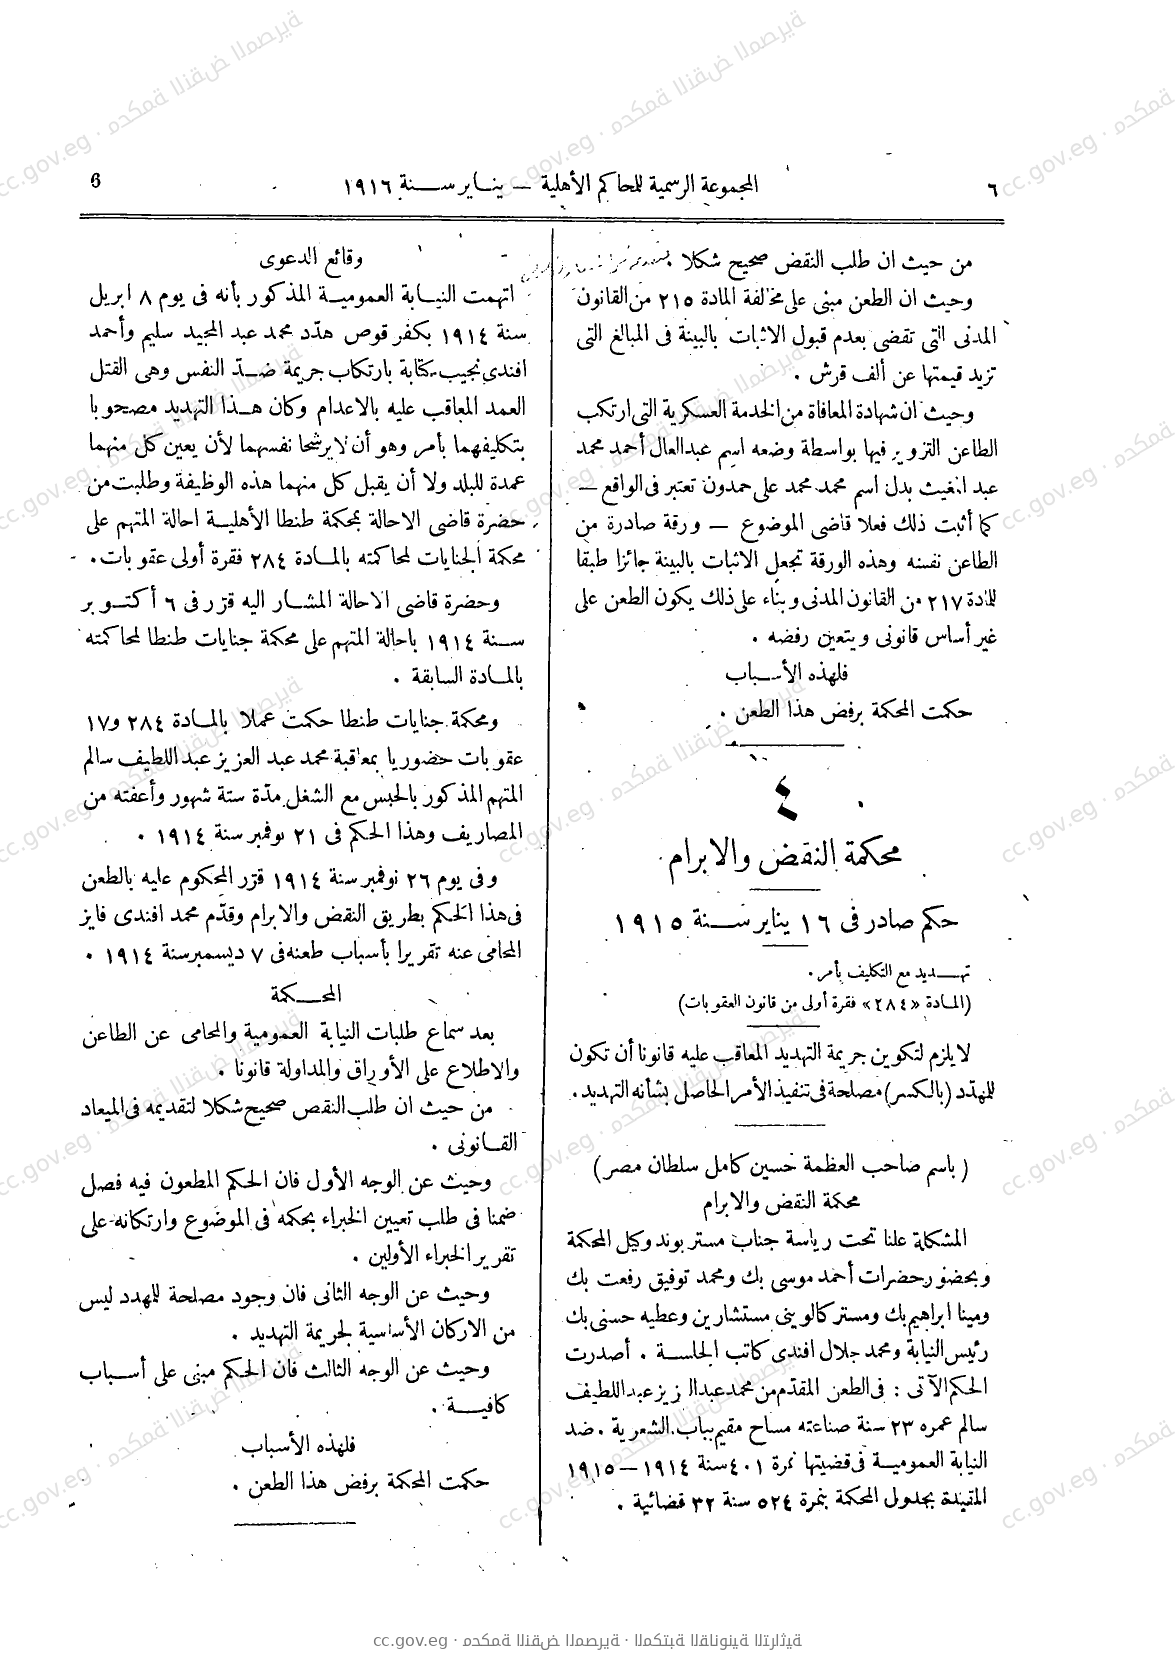 ٦
المجموعة الرسمية للمحاكم الأهلية — ينــاير ســنة ١٩١٦
6
من حيث ان طلب النقض صحيح شكلا .
وحيث ان الطعن مبنى على مخالفة المادة ٢١٥ من القانون
المدنى التى تقضى بعدم قبول الاثبات بالبينة فى المبالغ التى
تزيد قيمتها عن ألف قرش .
وحيث ان شهادة المعافاة من الخدمة العسكرية التى ارتكب
الطاعن التزوير فيها بواسطة وضعه اسم عبدالعال أحمد محمد
عبد المغيث بدل اسم محمد محمد على حمدون تعتبر فى الواقع —
كما أثبت ذلك فعلا قاضى الموضوع — ورقة صادرة من
الطاعن نفسه وهذه الورقة تجعل الاثبات بالبينة جائزا طبقا
للمادة ٢١٧ من القانون المدنى وبناء على ذلك يكون الطعن على
غير أساس قانونى ويتعين رفضه .
فلهذه الأســباب
حكمت المحكمة برفض هذا الطعن .
٤
محكمة النقض والابرام
حكم صادر فى ١٦ يناير ســنة ١٩١٥
تهــديد مع التكليف بأمر .
(المـادة «٢٨٤» فقرة أولى من قانون العقوبات)
لا يلزم لتكوين جريمة التهديد المعاقب عليه قانونا أن تكون
للمهدّد (بالكسر) مصلحة فى تنفيذ الأمر الحاصل بشأنه التهديد .
( باسم صاحب العظمة حسين كامل سلطان مصر)
محكمة النقض والابرام
المشكلة علنا تحت رياسة جناب مستر بوند وكيل المحكمة
وبحضور حضرات أحمد موسى بك ومحمد توفيق رفعت بك
ومينا ابراهيم بك ومستر كالوينى مستشارين وعطيه حسنى بك
رئيس النيابة ومحمد جلال افندى كاتب الجلســة . أصدرت
الحكم الآتى : فى الطعن المقدّم من محمد عبد العزيز عبد اللطيف
سالم عمره ٢٣ سنة صناعته مساح مقيم بباب الشعرية . ضد
النيابة العموميــة فى قضيتها نمرة ٤٠١ سنة ١٩١٤ — ١٩١٥
المقيدة بجدول المحكمة بنمرة ٥٢٤ سنة ٣٢ قضائية .
وقائع الدعوى
اتهمت النيــابة العموميــة المذكور بأنه فى يوم ٨ ابريل
سنة ١٩١٤ بكفر قوص هدّد محمد عبد المجيد سليم وأحمد
افندى نجيب كتابة بارتكاب جريمة ضــدّ النفس وهى القتل
العمد المعاقب عليه بالاعدام وكان هــذا التهديد مصحوبا
بتكليفهما بأمر وهو أن لا يرشحا نفسهما لأن يعين كل منهما
عمدة للبلد ولا أن يقبل كل منهما هذه الوظيفة وطلبت من
حضرة قاضى الاحالة بمحكمة طنطا الأهليــة احالة المتهم على
محكمة الجنايات لمحاكمته بالمــادة ٢٨٤ فقرة أولى عقوبات .
وحضرة قاضى الاحالة المشــار اليه قرّر فى ٦ أكتــوبر
ســنة ١٩١٤ باحالة المتهم على محكمة جنايات طنطا لمحاكمته
بالمــادة السابقة .
ومحكمة جنايات طنطا حكمت عملا بالمــادة ٢٨٤ و١٧
عقوبات حضوريا بمعاقبة محمد عبد العزيز عبد اللطيف سالم
المتهم المذكور بالحبس مع الشغل مدّة ستة شهور وأعفته من
المصاريف وهذا الحكم فى ٢١ نوفمبر سنة ١٩١٤ .
وفى يوم ٢٦ نوفمبر سنة ١٩١٤ قرّر المحكوم عليه بالطعن
فى هذا الحكم بطريق النقض والابرام وقدّم محمد افندى فايز
المحامى عنه تقريرا بأسباب طعنه فى ٧ ديسمبر سنة ١٩١٤ .
المحــكمة
بعد سماع طلبات النيابة العمومية والمحامى عن الطاعن
والاطلاع على الأوراق والمداولة قانونا .
من حيث ان طلب النقض صحيح شكلا لتقديمه فى الميعاد
القــانونى .
وحيث عن الوجه الأول فان الحكم المطعون فيه فصل
ضمنا فى طلب تعيين الخبراء بحكمه فى الموضوع وارتكانه على
تقرير الخبراء الأولين .
وحيث عن الوجه الثانى فان وجود مصلحة للمهدد ليس
من الاركان الأساسية لجريمة التهديد .
وحيث عن الوجه الثالث فان الحكم مبنى على أســباب
كافيــة .
فلهذه الأسباب
حكمت المحكمة برفض هذا الطعن .
cc.gov.eg · محكمة النقض المصرية · المكتبة القانونية التراثية